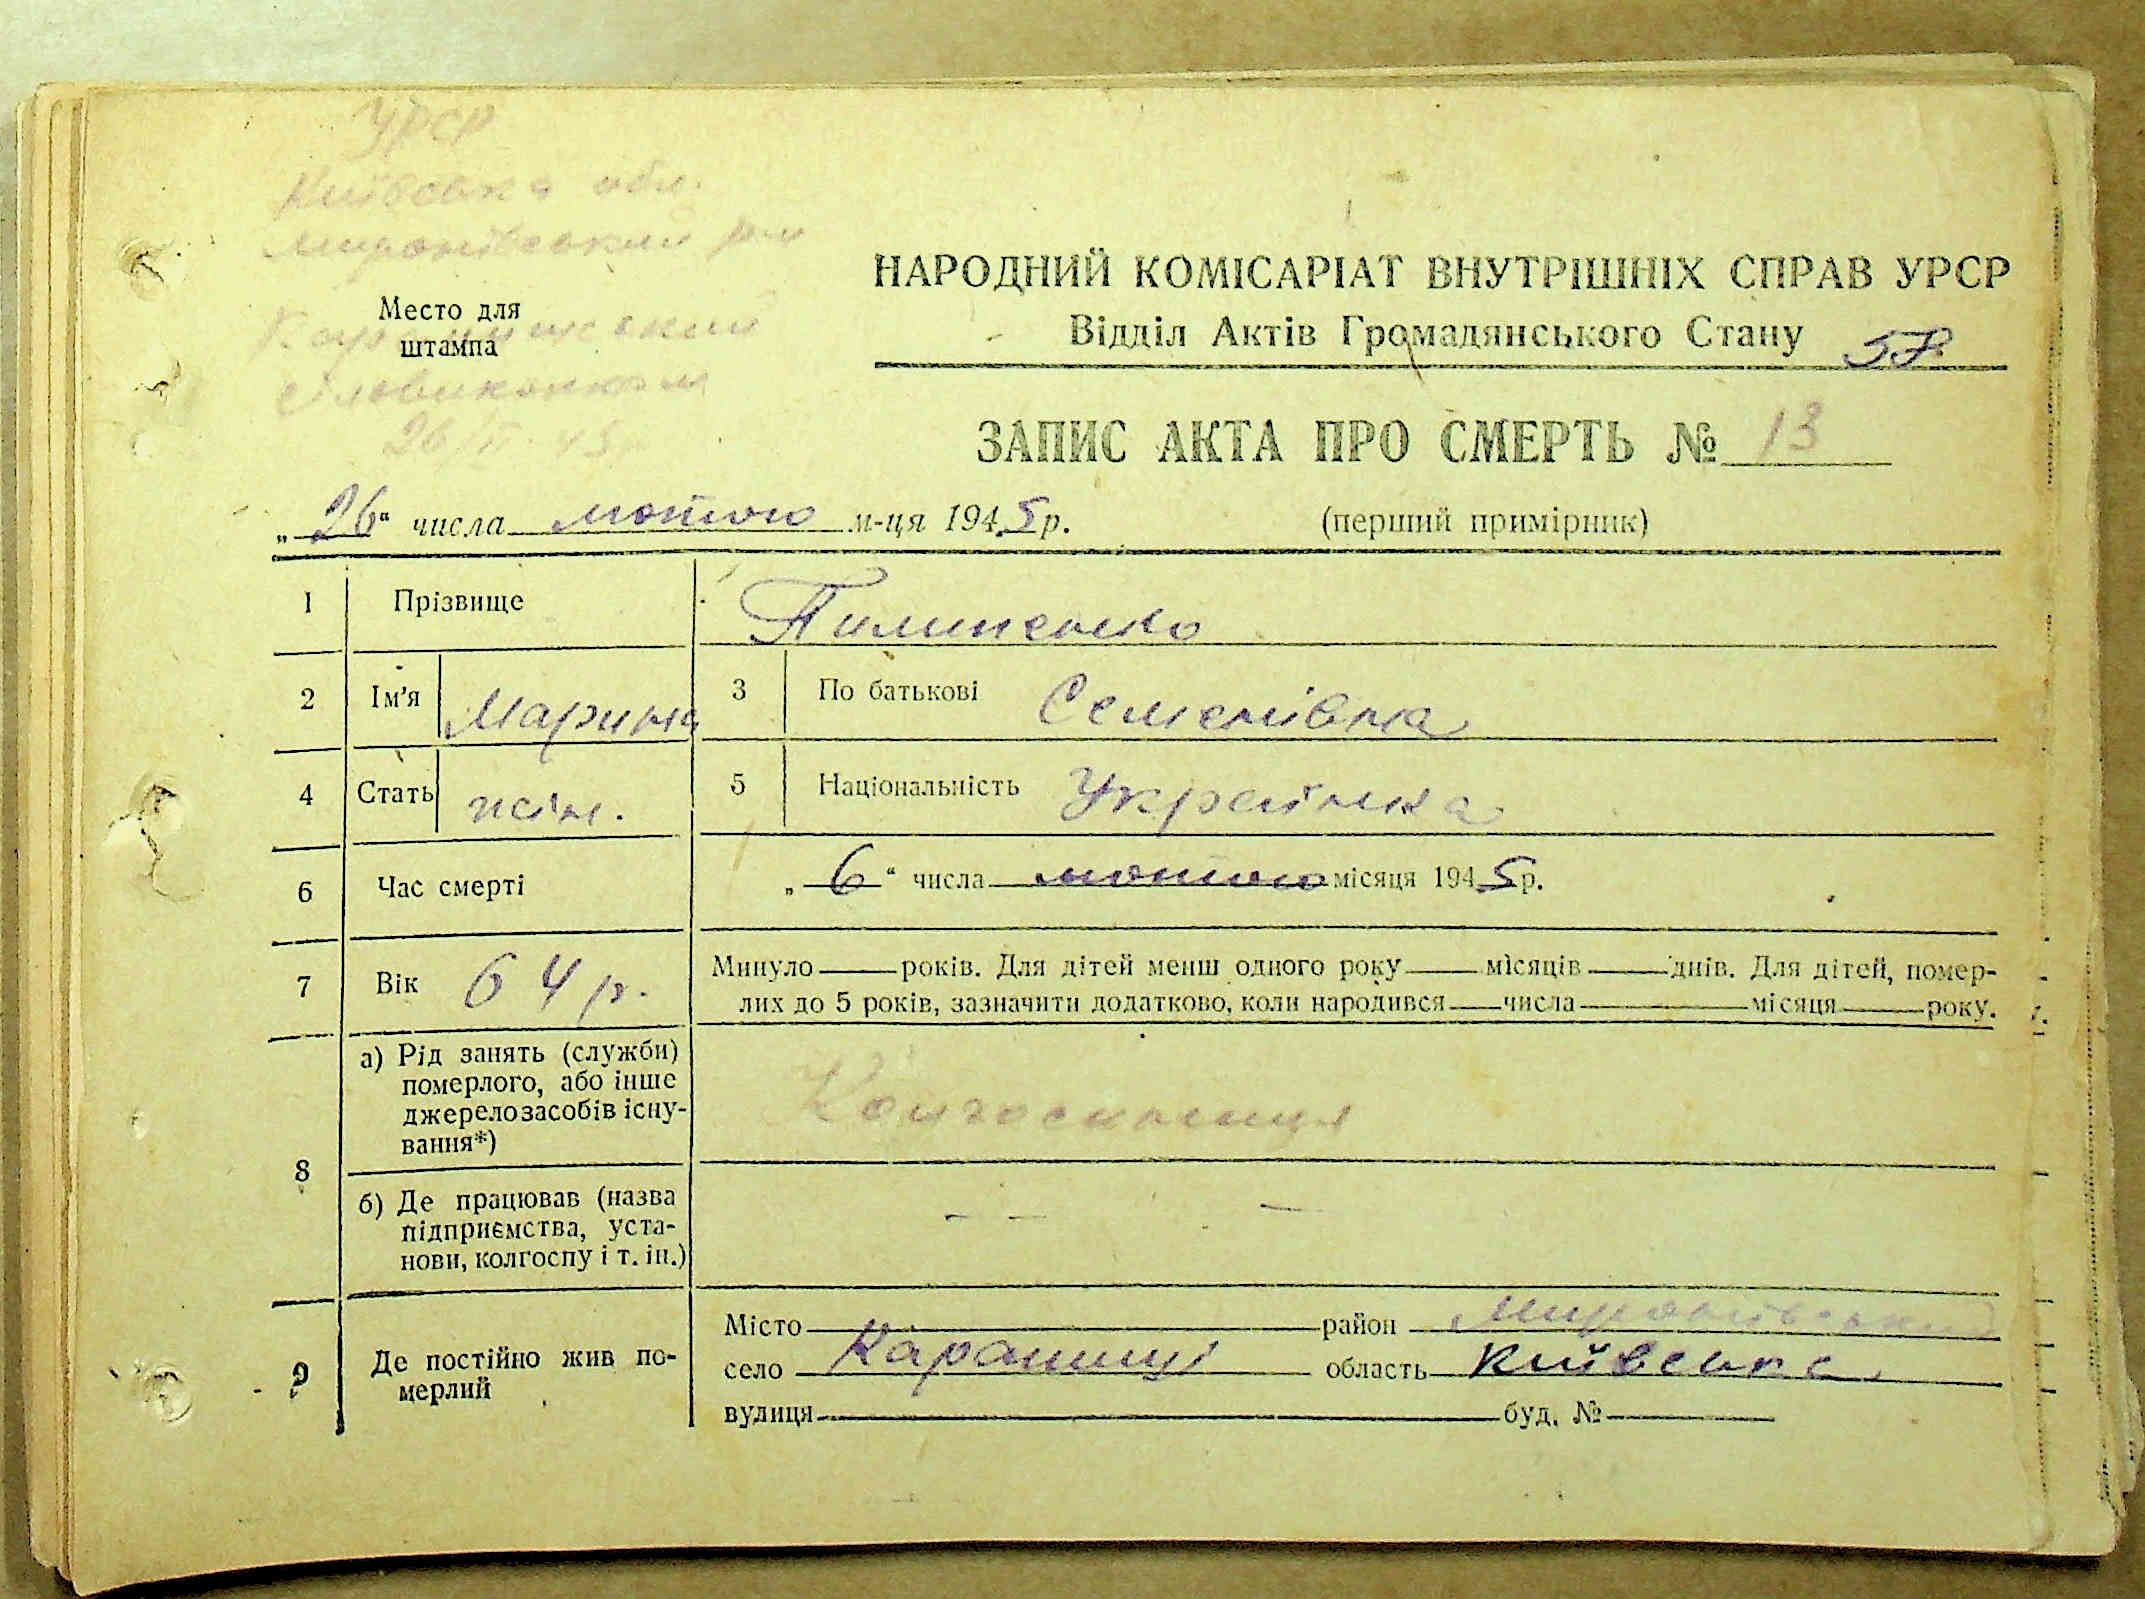 УРСР
Київська обл.
Миронівський р-н
Место для
штампа
Карапишський
сільвиконком
26/II 45
НАРОДНИЙ КОМІСАРІАТ ВНУТРІШНІХ СПРАВ УРСР
Відділ Актів Громадянського Стану 57
ЗАПИС АКТА ПРО СМЕРТЬ № 13
„26“ числа лютого м-ця 1945 р.
(перший примірник)
1 Прізвище Пилипенко
2 Ім'я Марина 3 По батькові Семенівна
4 Стать жін. 5 Національність Українка
6 Час смерті „6“ числа лютого місяця 1945 р.
7 Вік 64 р. Минуло років. Для дітей менш одного року місяців днів. Для дітей, помер-
лих до 5 років, зазначити додатково, коли народився числа місяця року.
8 а) Рід занять (служби)
померлого, або інше
джерело засобів існу-
вання*)
Колгоспниця
б) Де працював (назва
підприємства, уста-
нови, колгоспу і т. ін.)
— — —
9 Де постійно жив по-
мерлий
Місто район Миронівський
село Карапиші область Київська
вулиця буд. №